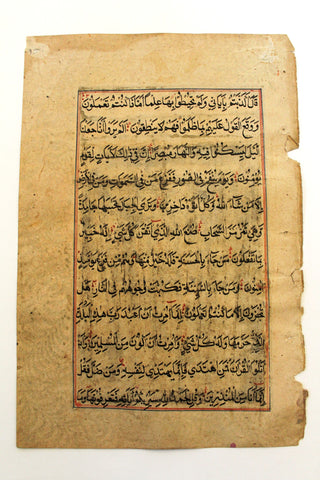 قال اكذبتم باياتي ولم تحيطوا بها علما اماذا كنتم تعملون
ووقع القول عليهم بما ظلموا فهم لا ينطقون الم يروا انا جعلنا
اليل ليسكنوا فيه والنهار مبصرا ان في ذلك لايات لقوم
يؤمنون ويوم ينفخ في الصور ففزع من في السموات ومن في الارض
الا من شاء الله وكل اتوه داخرين وترى الجبال تحسبها جامدة
وهي تمر مر السحاب صنع الله الذي اتقن كل شيء انه خبير
بما تفعلون من جاء بالحسنة فله خير منها وهم من فزع يومئذ
امنون ومن جاء بالسيئة فكبت وجوههم في النار هل
تجزون الا ما كنتم تعملون انما امرت ان اعبد رب هذه البلدة
الذي حرمها وله كل شيء وامرت ان اكون من المسلمين وان
اتلو القران فمن اهتدى فانما يهتدي لنفسه ومن ضل فقل
انما انا من المنذرين وقل الحمد لله سيريكم اياته فتعرفونها وما